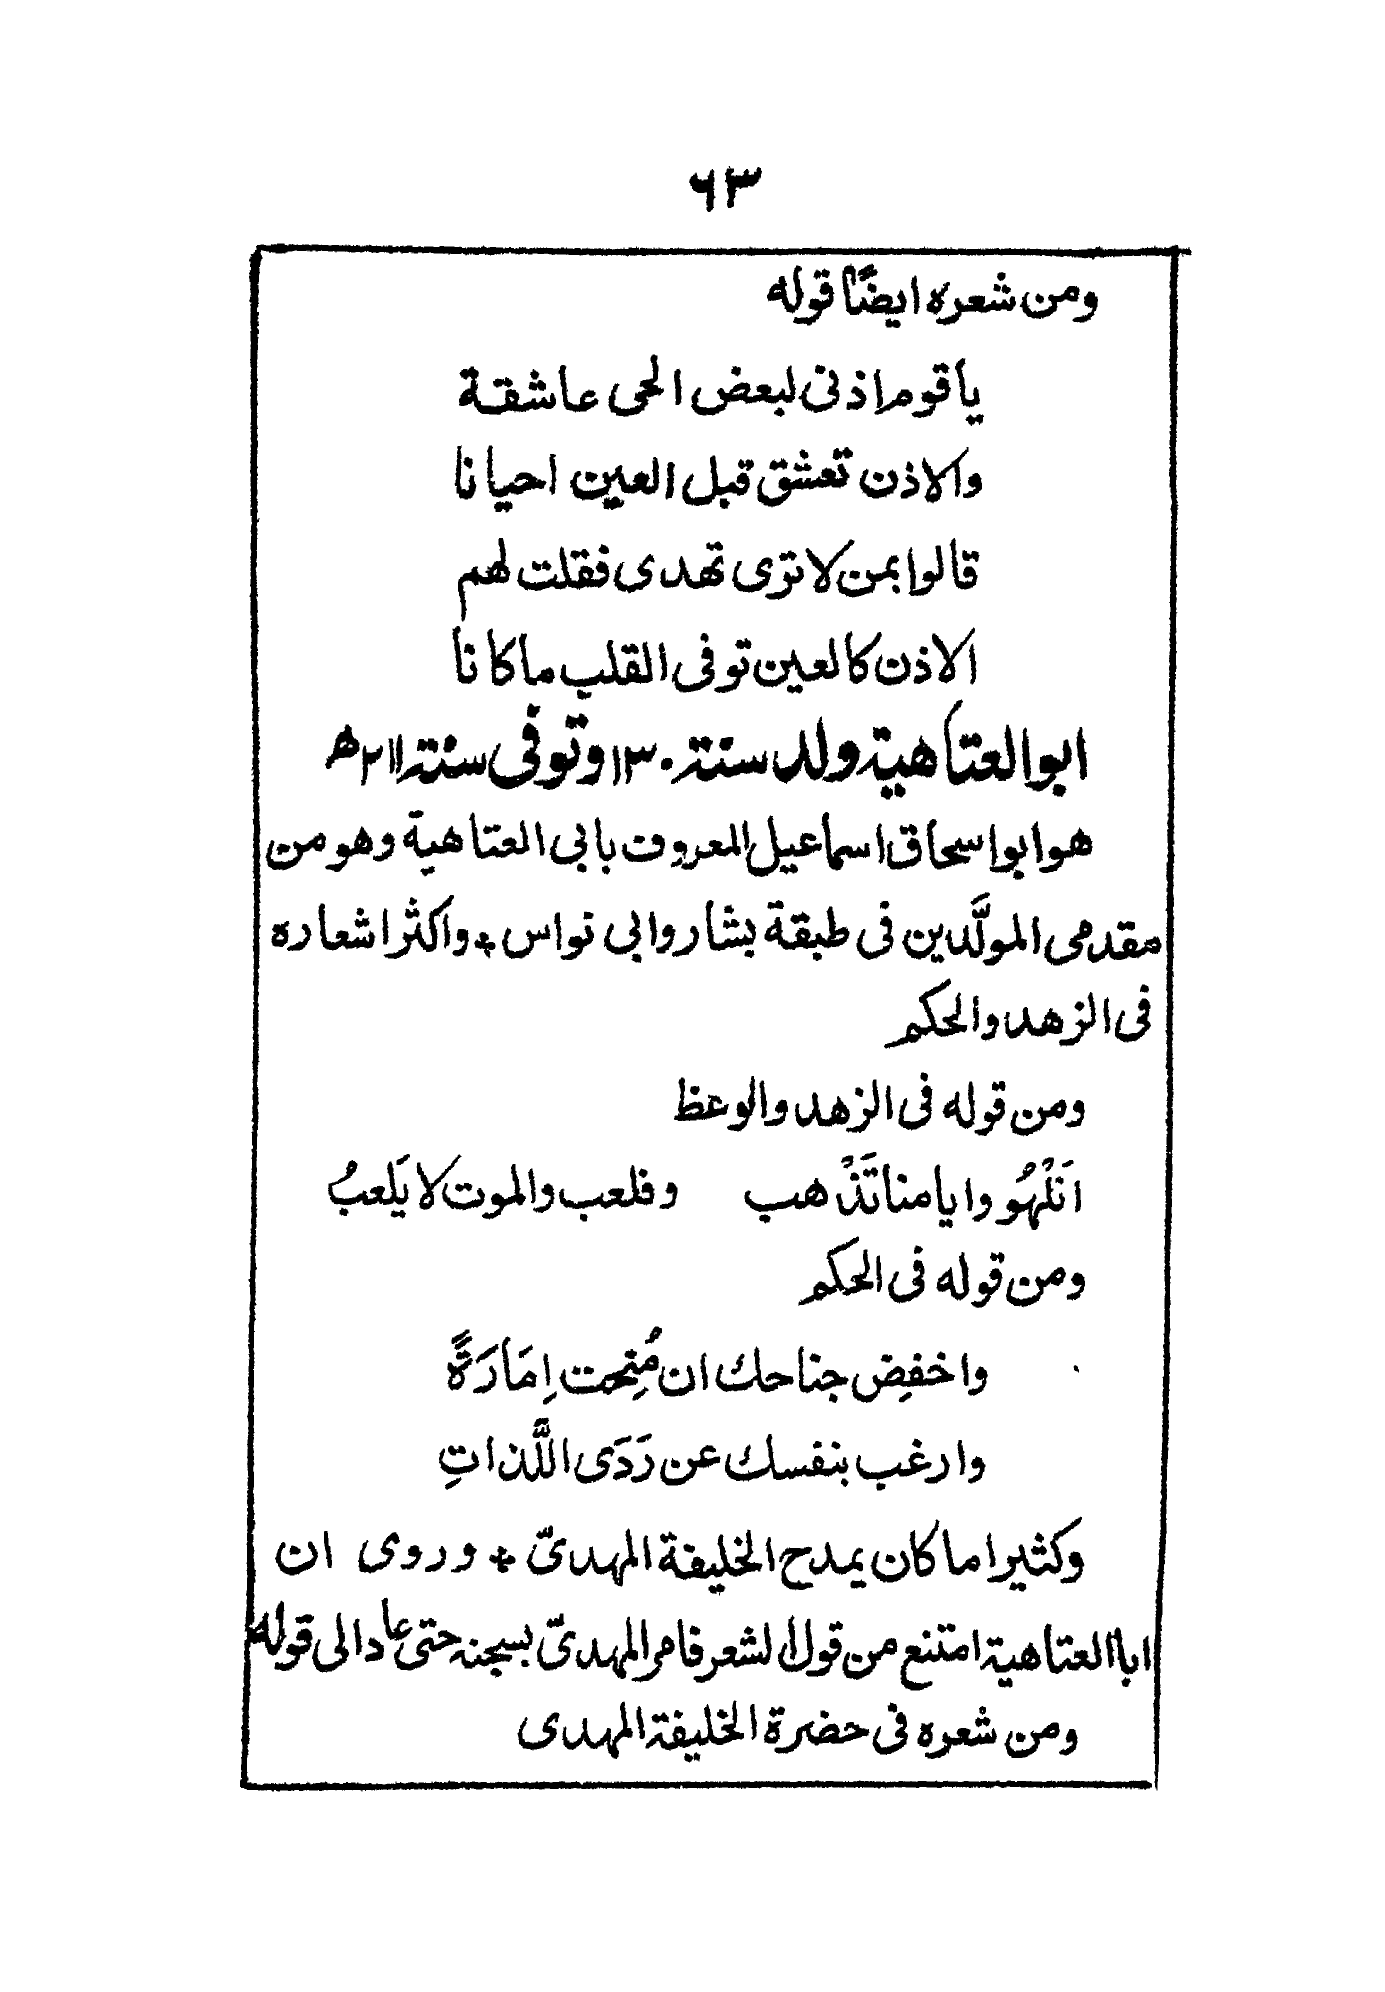 ٦٣
ومن شعره ايضًا قوله
يا قوم اذنى لبعض الحى عاشقة
والاذن تعشق قبل العين احيانا
قالوا بمن لا ترى تهدى فقلت لهم
الاذن كالعين توفى القلب ما كانا
ابو العتاهية ولد سنة ١٣٠ وتوفى سنة ٢١١ ھ
هو ابو اسحاق اسماعيل المعروف بابى العتاهية وهو من
مقدمى المولَّدين فى طبقة بشار وابى نواس ، واكثر اشعاره
فى الزهد والحكم
ومن قوله فى الزهد والوعظ
اَنَلْهُو وايامنا تَذْهب وفلعب والموت لا يَلعبُ
ومن قوله فى الحكم
واخفِض جناحك ان مُنِحت اِمَارَةً
وارغب بنفسك عن رَدَى اللَّذاتِ
وكثيرا ما كان يمدح الخليفة المهدىّ ، وروى ان
ابا العتاهية امتنع من قول الشعر فامر المهدىّ بسجنه حتى عاد الى قوله
ومن شعره فى حضرة الخليفة المهدى